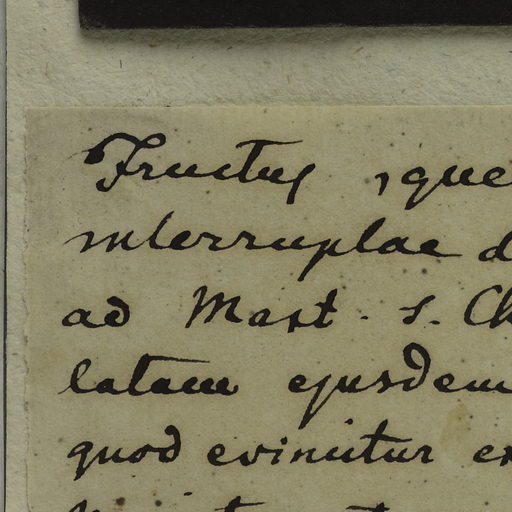 Fructus ique
interruptae d
ad Mast. s. Ch
latam ejusdem
quod evincitur ex